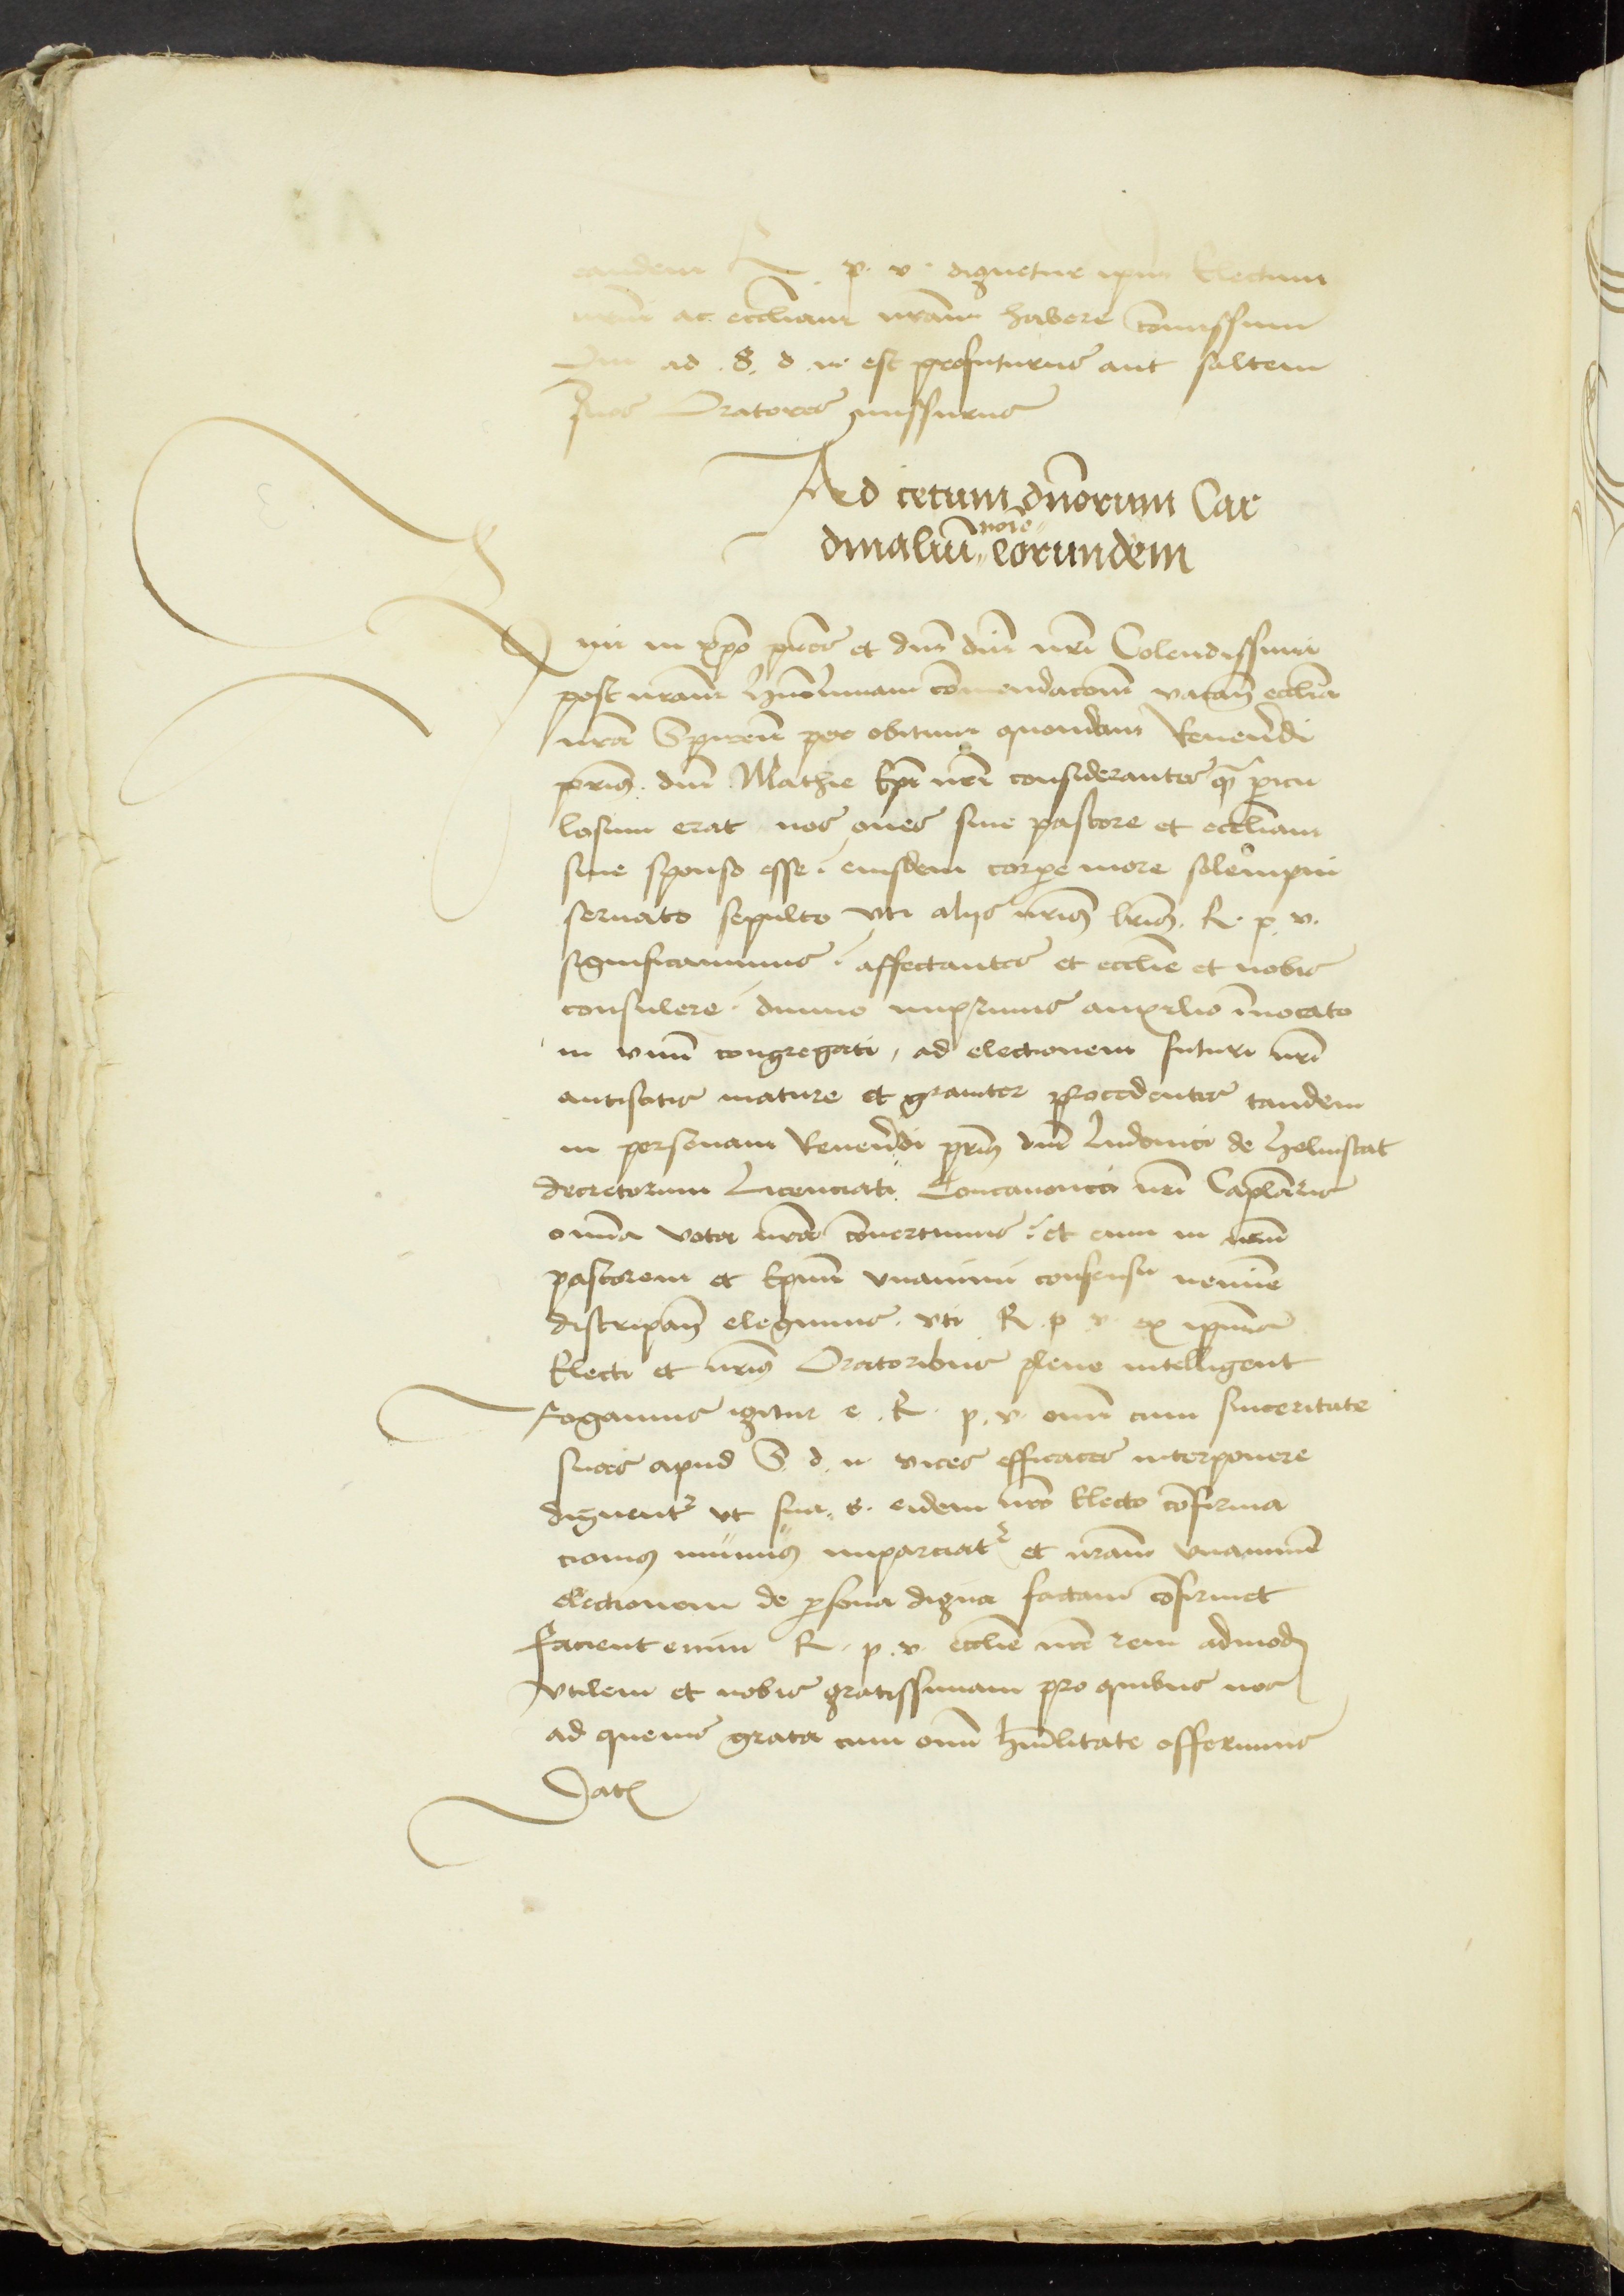 eandem R. p. v. dignetur ipm̄ Electum
nrm̄ ac eccliam nram̄ habere comissum
Qui ad .S. d. n. est profuturus aut saltem
suos Oratores missurus
Ad cetum dnōrum Car
dinaliū noīe eorundem
mi in xpo pr̄es et dn̄i dn̄i nr̄i Colendissimi
post nram̄ hum̄limam comendacōem vacan̄ ecclia
nrā Spiren̄ per obitum quondam Reuerēdi
pr̄is dn̄i Mathie Epī nr̄i considerantes q̄ꝫ pericu
losum erat nos oues sine pastore et eccliam
sine sponso esse . eiusdem corpe more solempni
seruato sepulto vti alijs nr̄is lr̄is . R. p. v.
significauimus . affectantes et ecclie et nobis
consulere . diuino inprimis auxilio inuocato
in vnū congregati , ad electionem futuri nr̄i
antistitis mature et grauiter procedentes tandem
in personam Reuerēdi pr̄is dn̄i Ludouici de Helmstat
decretorum Licenciati Concanonici nr̄i Caplāris
omīa vota nrā conuertimus . et eum in nrm̄
pastorem et Epum̄ vnanimi consensu nemīe
discrepan̄ elegimus . vti R. p. v. ex ipius
Electi et nr̄is Oratoribus plene intelligent
Rogamus igitur e . R. p. v. omi cum sinceritate
suas apud S. d. n. vices efficaces interponere
dignent̄ vt sua . s. eidem nrō Electo cōfirma
cionis munus impareiat̄ et nram̄ vnanimē
electionem de psona digna factam cōfirmet
Facient enim R. p. v. ecclie nr̄e rem admodū
vtilem et nobis gratissimam pro quibus nos
ad queuis grata cum omi hum̄litate offerimus
Datū